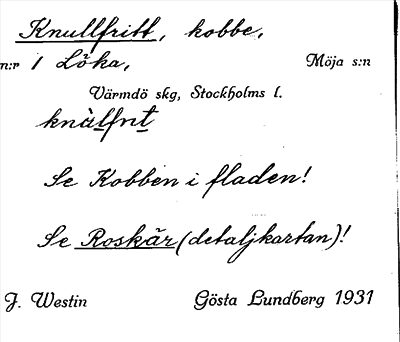 Knullfritt, kobbe,
n:r 1 Löka, Möja s:n
Värmdö skg, Stockholms l.
knàlfrıt
Se Kobben i fladen!
Se Roskär (detaljkartan)!
J. Westin Gösta Lundberg 1931